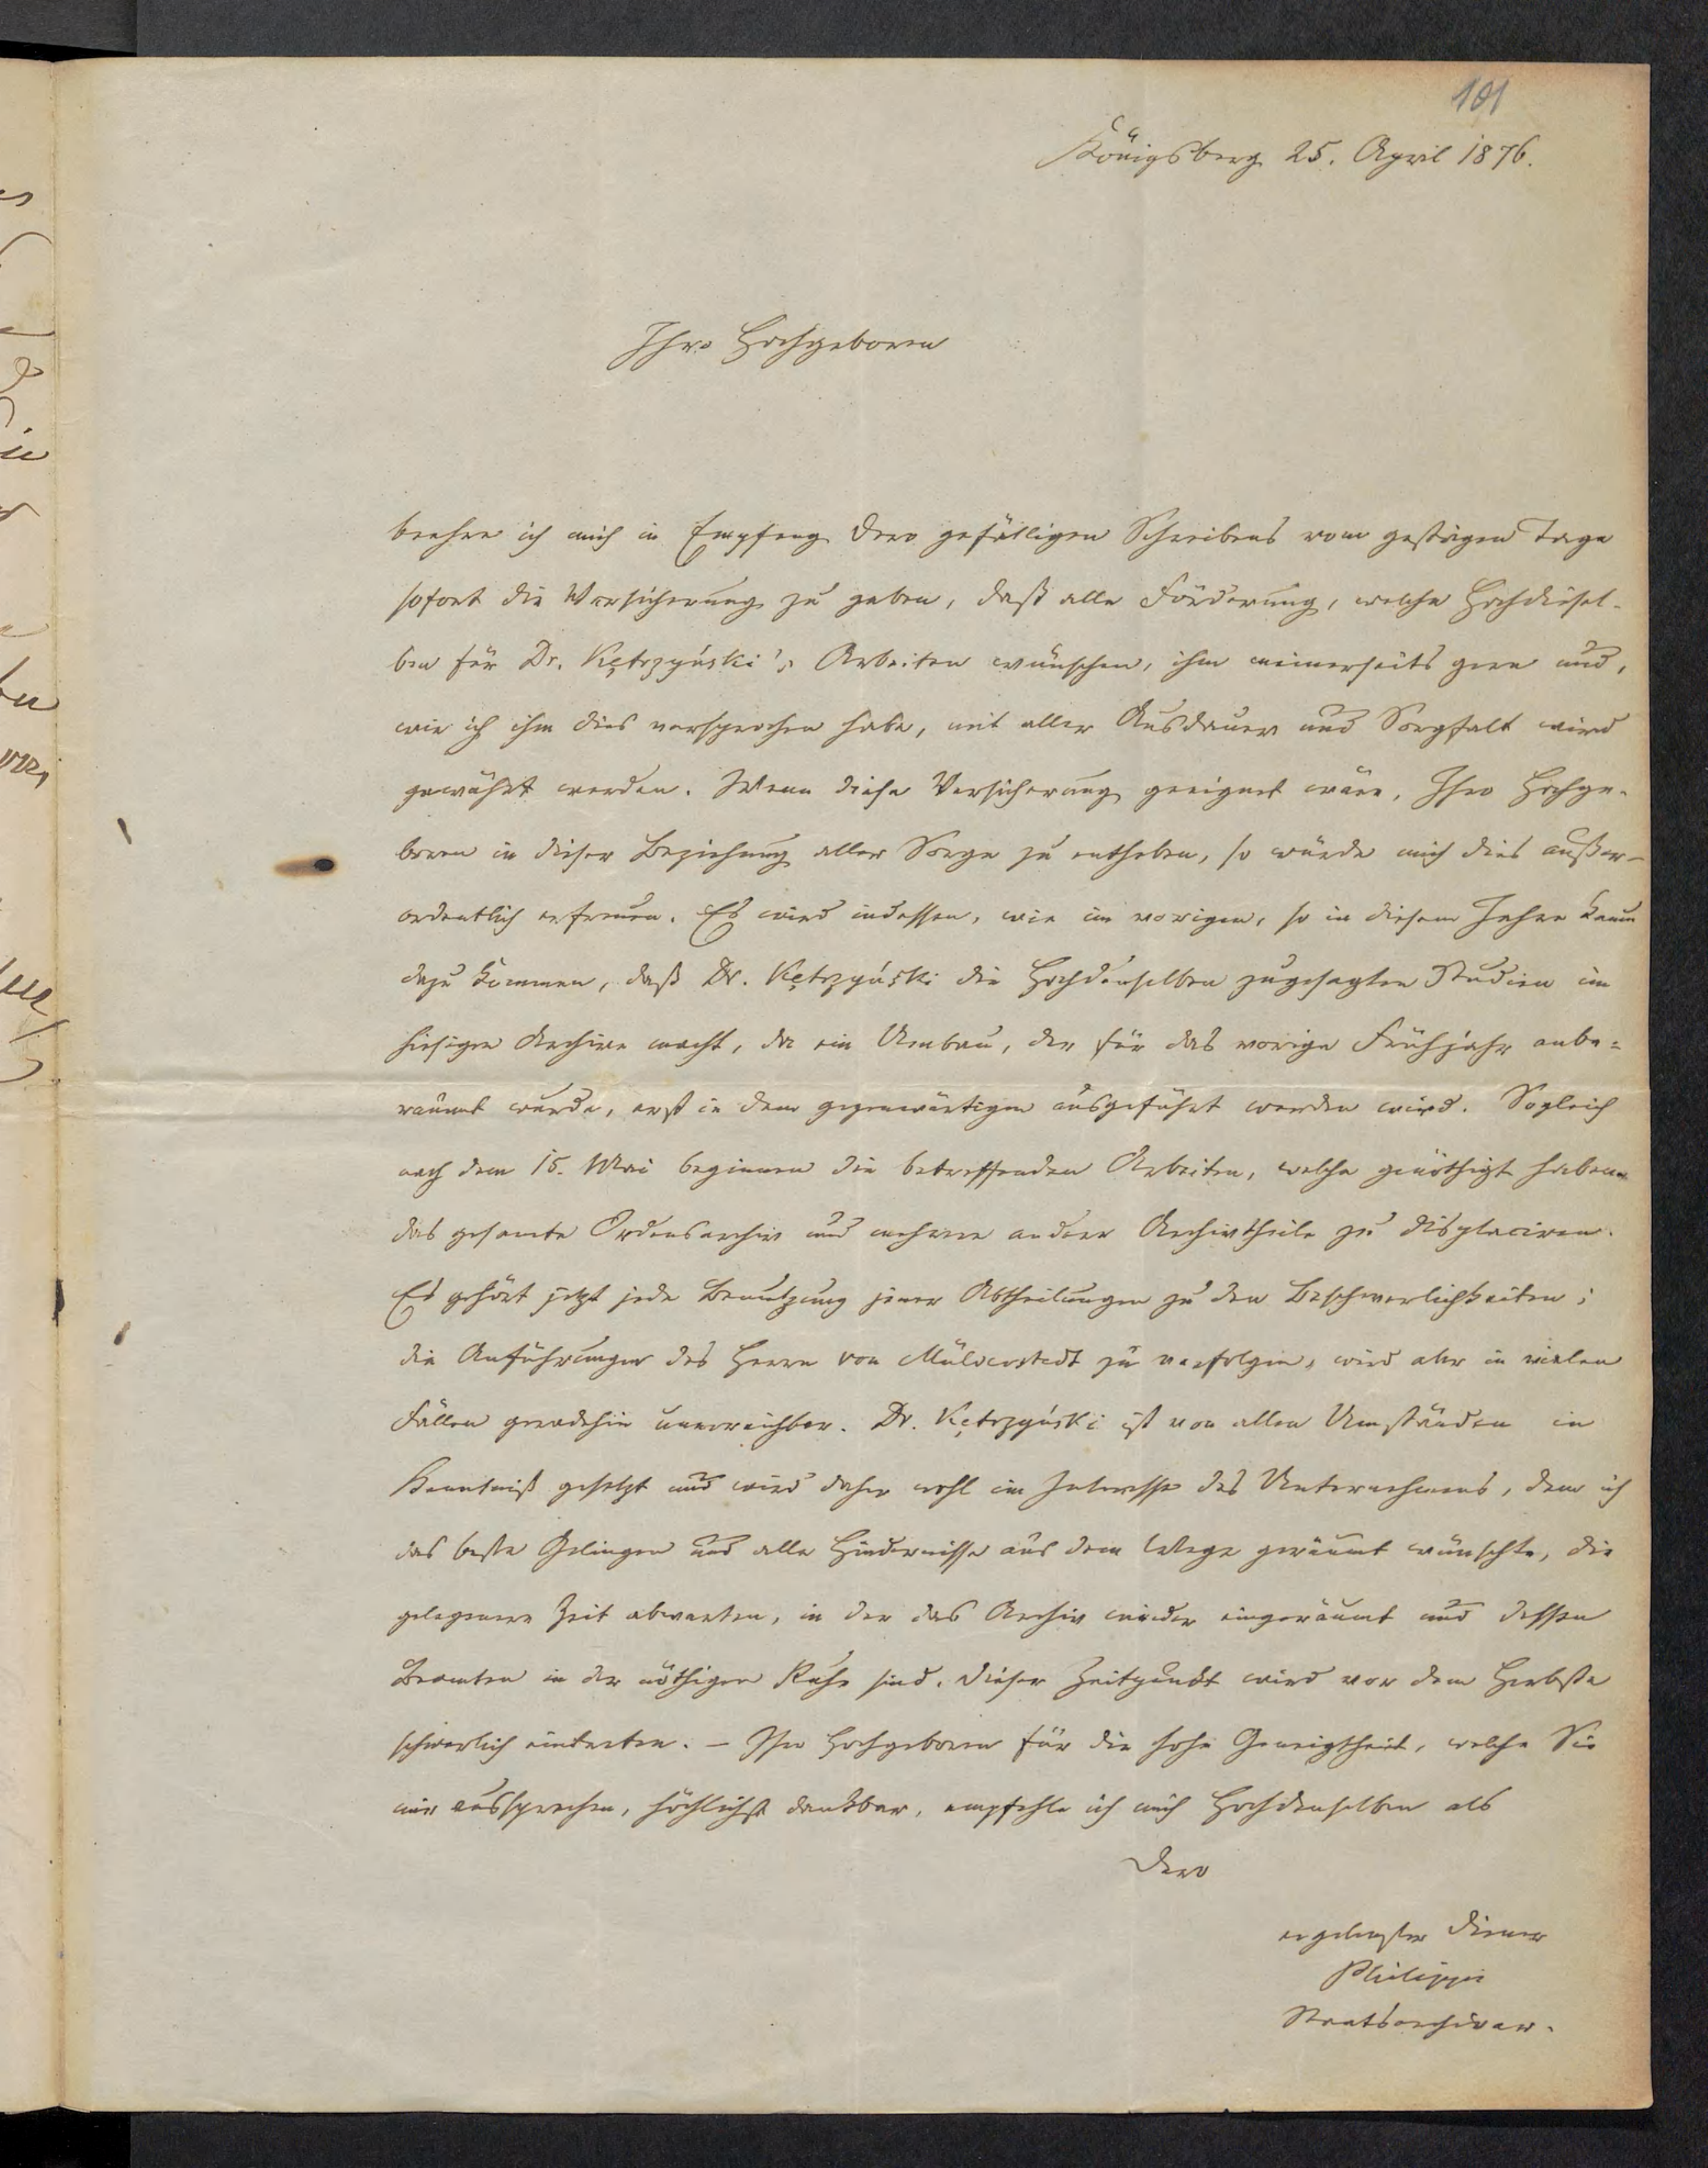 101
Königsberg 25. April 1876.
Ihro Hochgeboren
beehre ich mich in Empfang Dero gefälligen Schreibens vom gestrigen Tage
sofort die Versicherung zu geben, daß alle Förderung, welche Hochdiesel-
ben für Dr. Kętrzyński's Arbeiten wünschen, ihm meinerseits gern und,
wie ich ihm dies versprochen habe, mit aller Ausdauer und Sorgfalt wird
gewährt werden. Wenn diese Versicherung geeignet wäre, Ihro Hochge-
boren in dieser Beziehung aller Sorge zu entheben, so würde mich dies außer-
ordentlich erfreuen. Es wird indessen, wie im vorigen, so in diesem Jahre kaum
dazu kommen, daß Dr. Kętrzyński die Hochdenselben zugesagten Studien im
hiesigen Archive macht, da ein Umbau, der für das vorige Frühjahr anbe-
raumt wurde, erst in dem gegenwärtigen ausgeführt werden wird. Sogleich
nach dem 15. Mai beginnen die betreffenden Arbeiten, welche genöthigt haben
das gesamte Ordensarchiv und mehrere andere Archivtheile zu displaciren.
Es gehört jetzt jede Benutzung jener Abtheilungen zu den Beschwerlichkeiten;
die Anführungen des Herrn von Mülverstedt zu verfolgen, wird aber in vielen
Fällen geradehin unerreichbar. Dr. Kętrzyński ist von allen Umständen in
Kenntniß gesetzt und wird daher wohl im Interesse des Unternehmens, dem ich
das beste Gelingen und alle Hindernisse aus dem Wege geräumt wünschte, die
gelegenere Zeit abwarten, in der das Archiv wieder eingeräumt und dessen
Beamten in der nöthigen Ruhe sind. Dieser Zeitpunkt wird vor dem Herbste
schwerlich eintreten. – Ihro Hochgeboren für die hohe Geneigtheit, welche Sie
mir aussprechen, höchlichst dankbar, empfehle ich mich Hochdenselben als
Dero
ergebenster Diener
Philippi
Staatsarchivar.